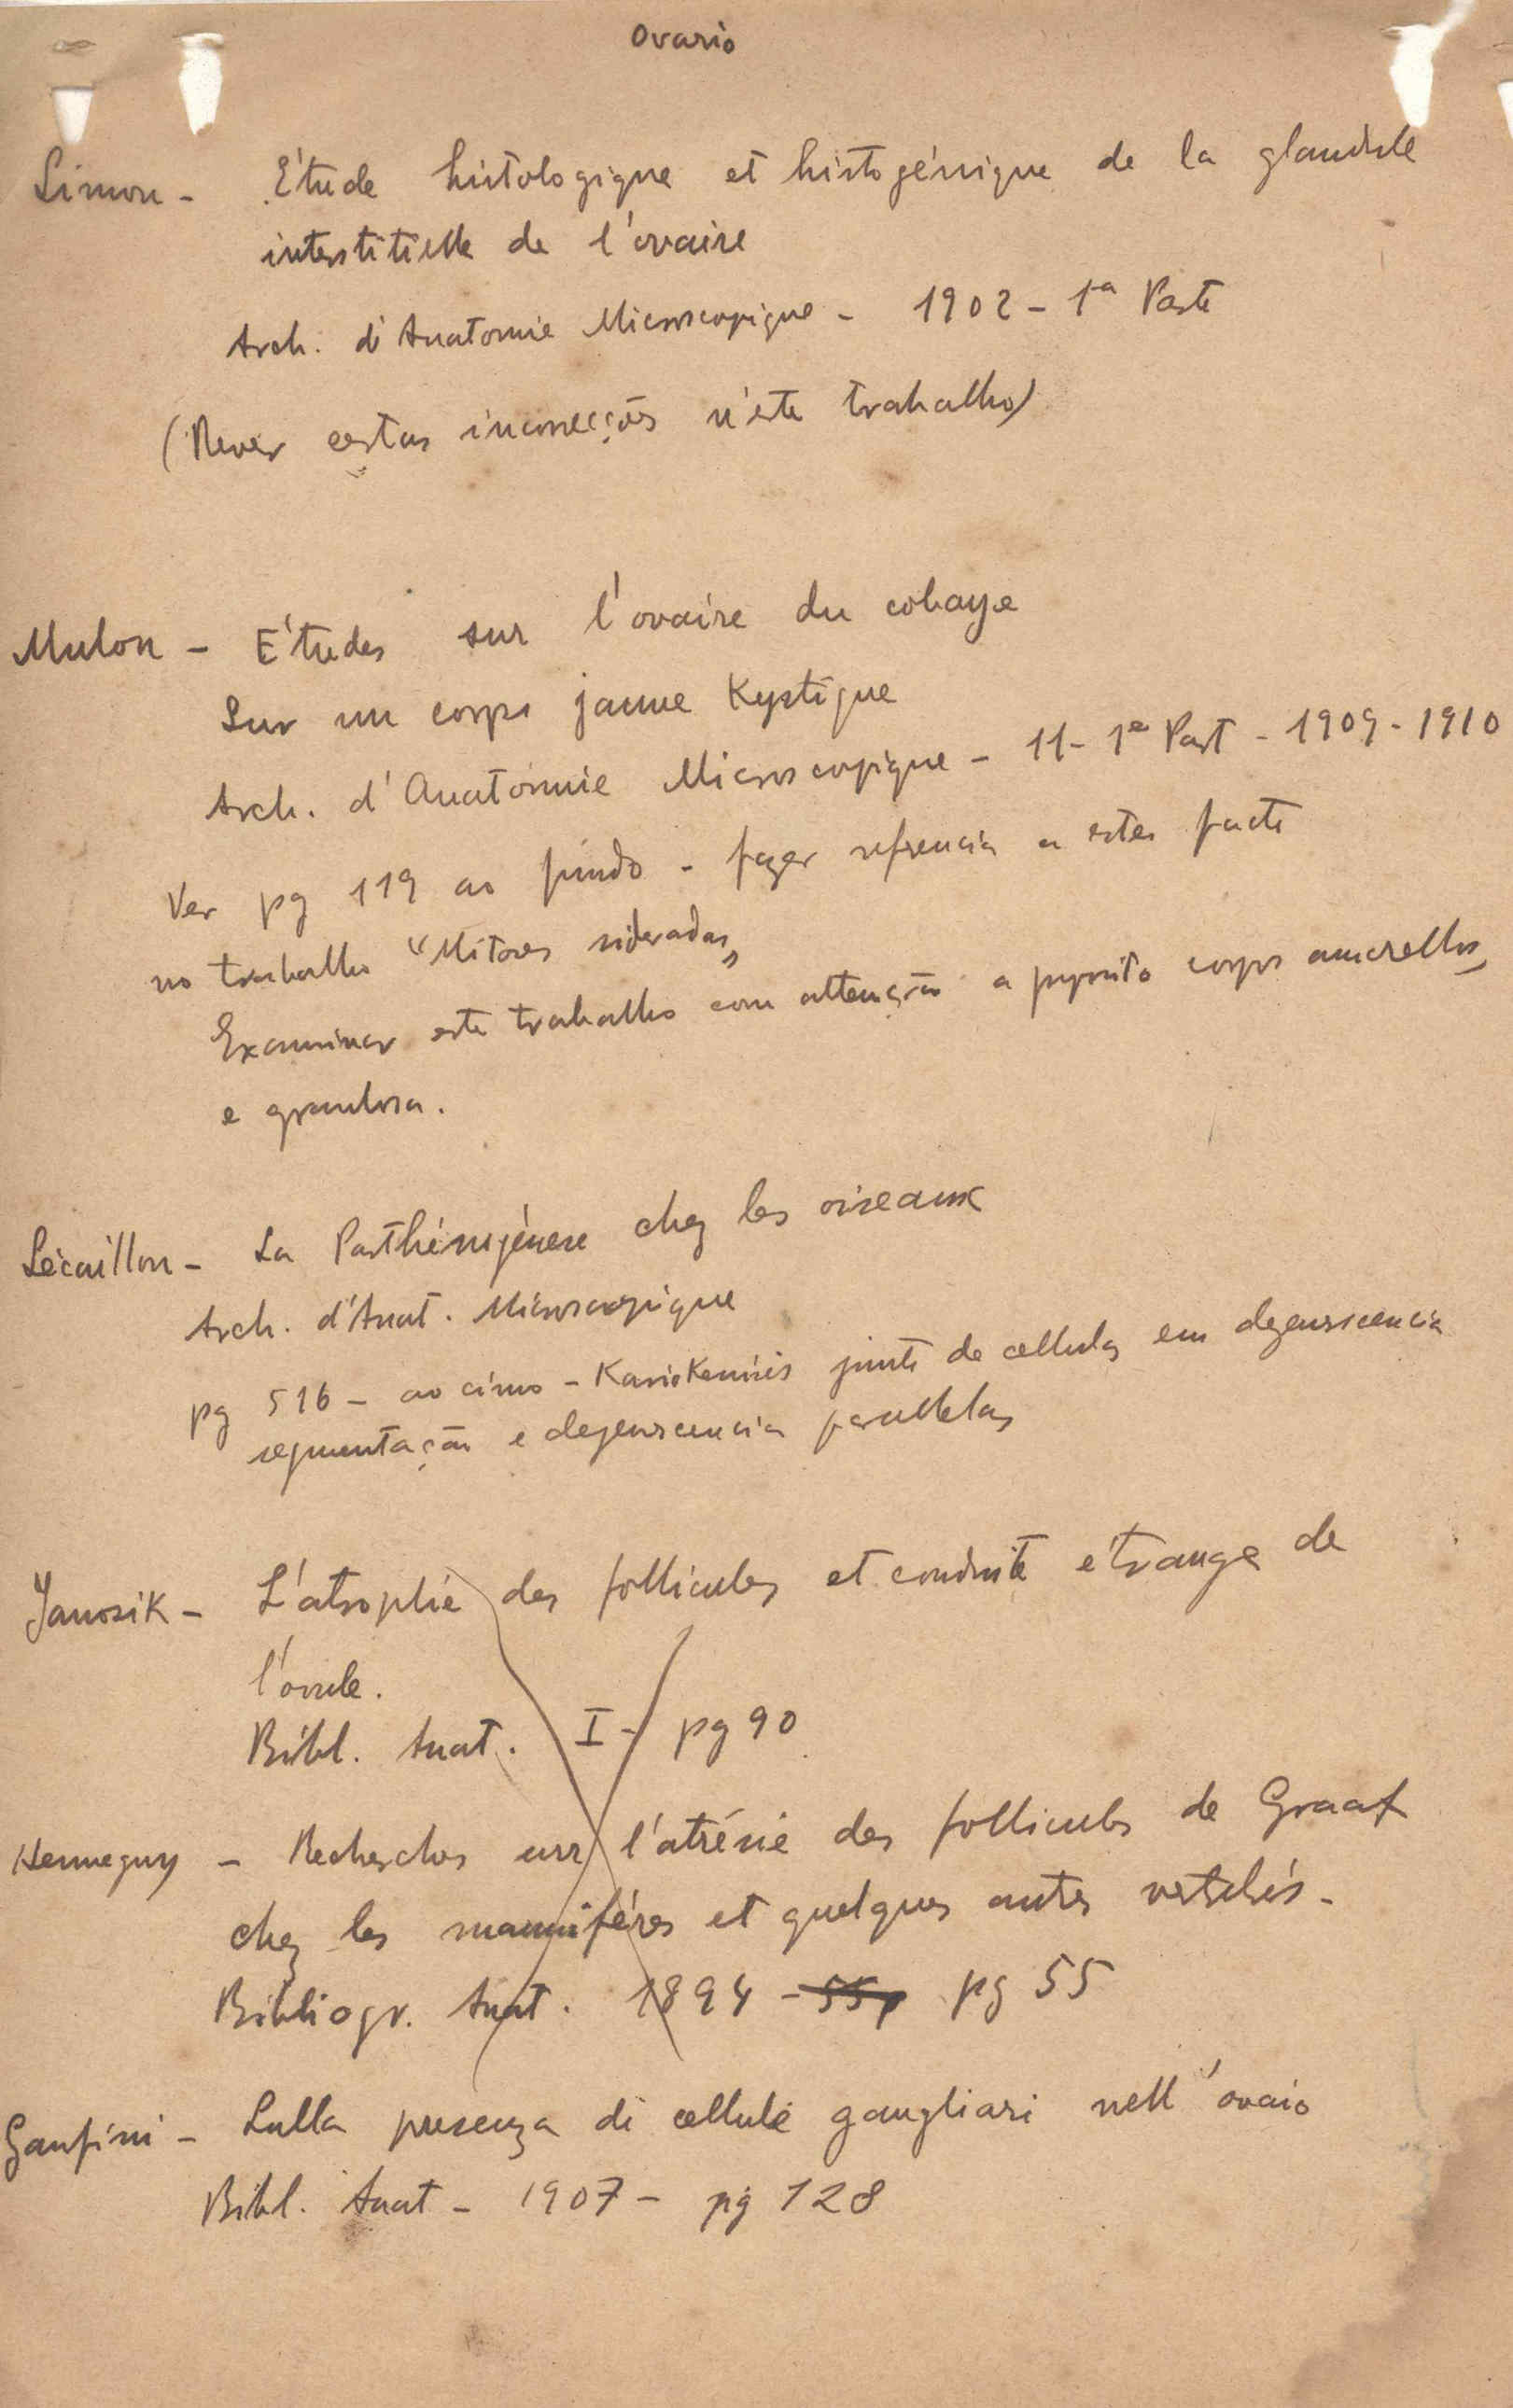 Ovario
Simon - Étude histologique et histogénique de la glandule
interstitielle de l'ovaire
Arch. d'Anatomie Microscopique - 1902 - 1ª Parte
(Rever certas incorrecções n'este trabalho)
Mulon - Études sur l'ovaire du cobaye
Sur un corps jaune Kystique
Arch. d'Anatomie Microscopique - 11 - 1ª Part - 1909 - 1910
Ver pg 119 ao fundo - fazer refrencia a estes facto
no trabalho "Mitoses sideradas"
Examinar este trabalho com attenção a proposito corpos amarellos
e granulosa.
Lécaillon - La Parthénogénese chez les oiseaux
Arch. d'Anat. Microscopique
pg 516 - ao cimo - Kariokenisis junto de cellulas em degenerscencia
segmentação e degenerscencia parallelas
Janosik - L'atrophie des follicules et conduite étrange de
l'ovule.
Bibl. Anat. I - pg 90
Henneguy - Recherches sur l'atrésie des follicules de Graaf
chez les mammiféres et quelques autres vertebrés -
Bibliogr. Anat. 1894 - 55p pg 55
Ganfini - Sulla presenza di cellule gangliari nell'ovaio
Bibl. Anat - 1907 - pg 128